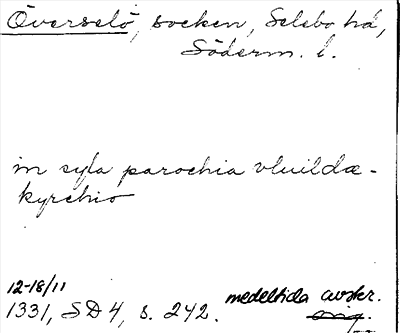 Överselö, socken, Selebo hd,
Söderm. l.
in syla parochia vluildæ-
kyrchio
12-18/11
1331, SD 4, s. 242. medeltida avskr.
orig.